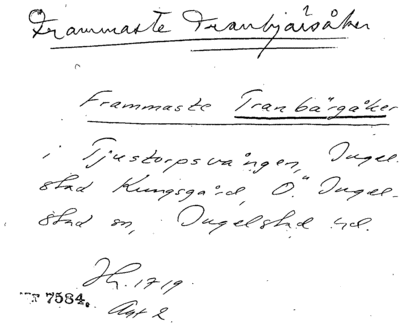 Frammaste Tranbjärsåker
Frammaste Tranbärgåker
i Tjustorpsvången, Ingel-
stad Kungsgård, Ö. Ingel-
stad sn, Ingelstad hd.
Jh. 1719
7584.
Akt 2.